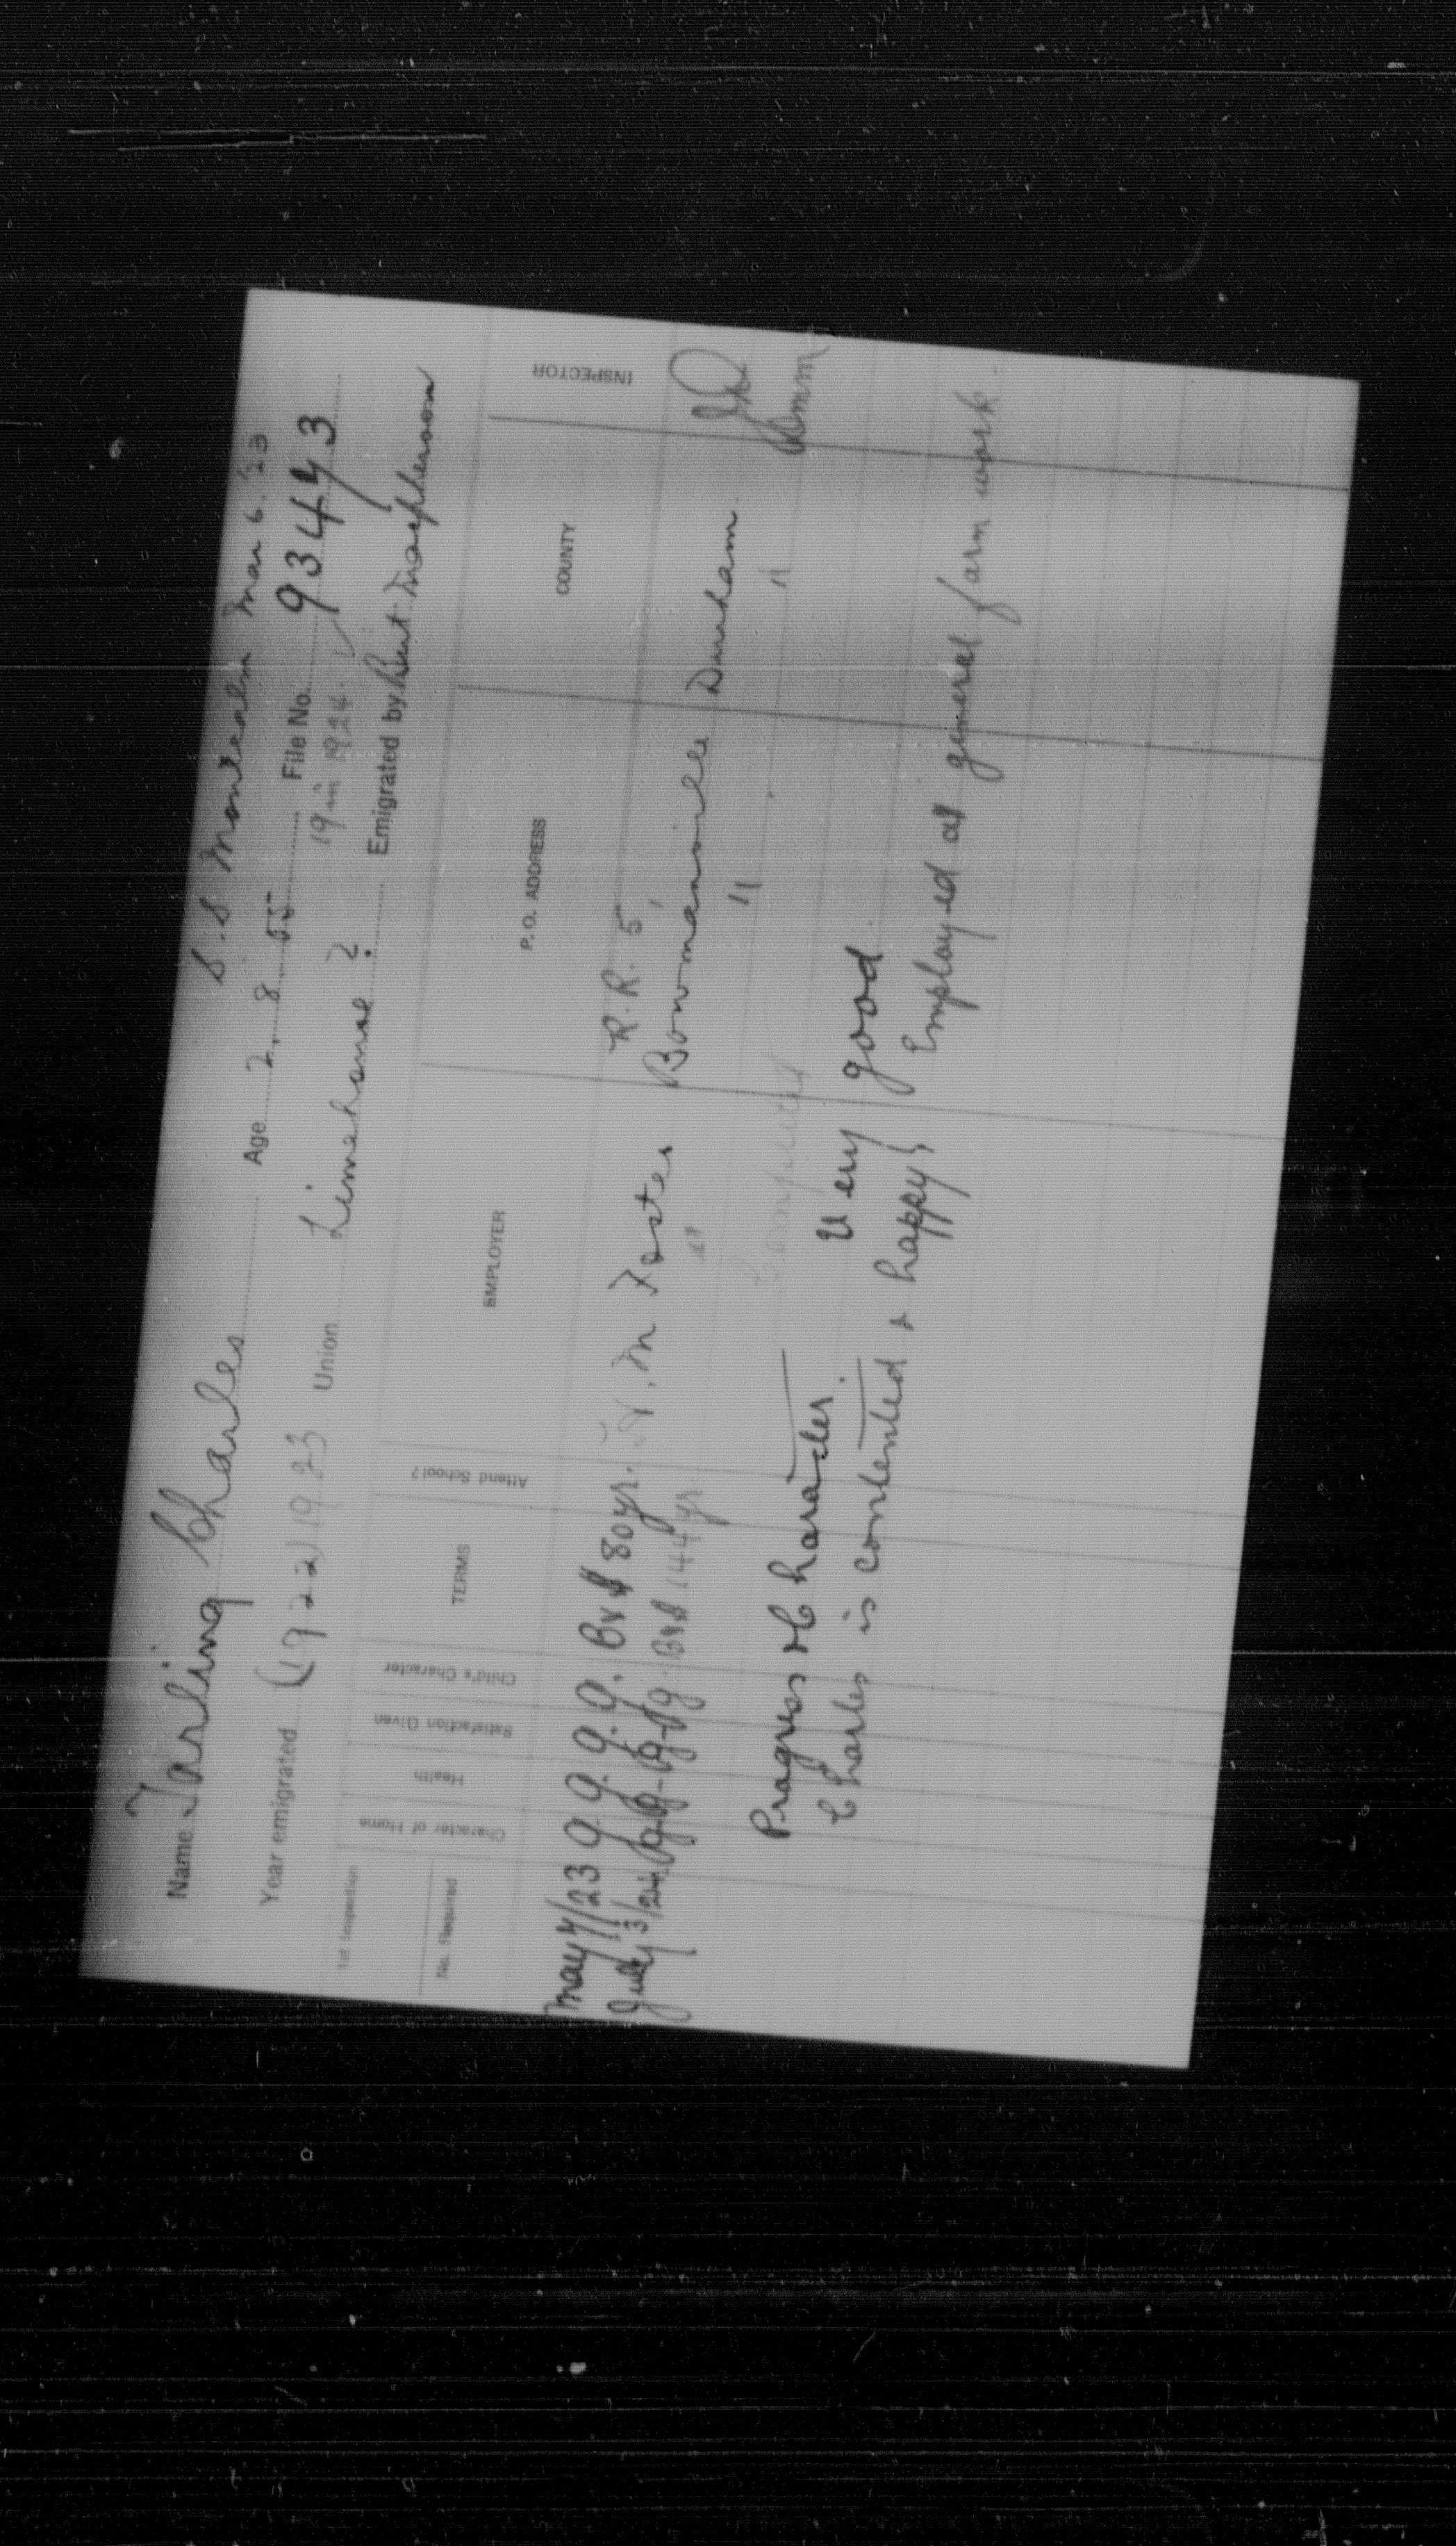 S.S Montcalm Mar 6. '23
Name Tarling Charles Age 2. 8. 05 File No. 93443
19 in 1924.
Year emigrated (1922) 1923 Union Limehouse ? Emigrated by Macpherson
1st Inspection
No. Required
Character of Home
Health
Satisfaction Given
Child's Character
TERMS
Attend School?
EMPLOYER
P. O. ADDRESS
COUNTY
INSPECTOR
R. R. 5,
May 7/23 g. g. g. g. $80 yr. M Foster Bowmanville Durham
July 3/24 g g g g $144 yr " " "
Completed
Progress & Character. Very good.
Charles is contented & happy. Employed at general farm work.